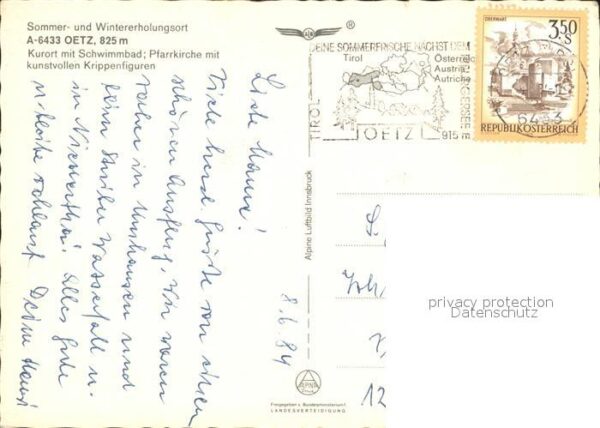 Sommer- und Wintererholungsort
A-6433 OETZ, 825 m
Kurort mit Schwimmbad; Pfarrkirche mit
kunstvollen Krippenfiguren
DEINE SOMMERFRISCHE NÄCHST DEM
Tirol
Österreich
Austria
Autriche
TIROL
OETZ
915 m
OBERWART
3.50
S
REPUBLIK ÖSTERREICH
6433
Liebe Mama!
Viele herzl. Grüße von einem
schönen Ausflug. Wir waren
vorher in Umhausen und
beim Stuiben Wasserfall u.
in Niederthai. Alles Gute
u. bleibe Deine Hansi
8.6.84
Alpine Luftbild Innsbruck
ALPINE
Freigegeben v. Bundesministerium f.
LANDESVERTEIDIGUNG
12
privacy protection
Datenschutz